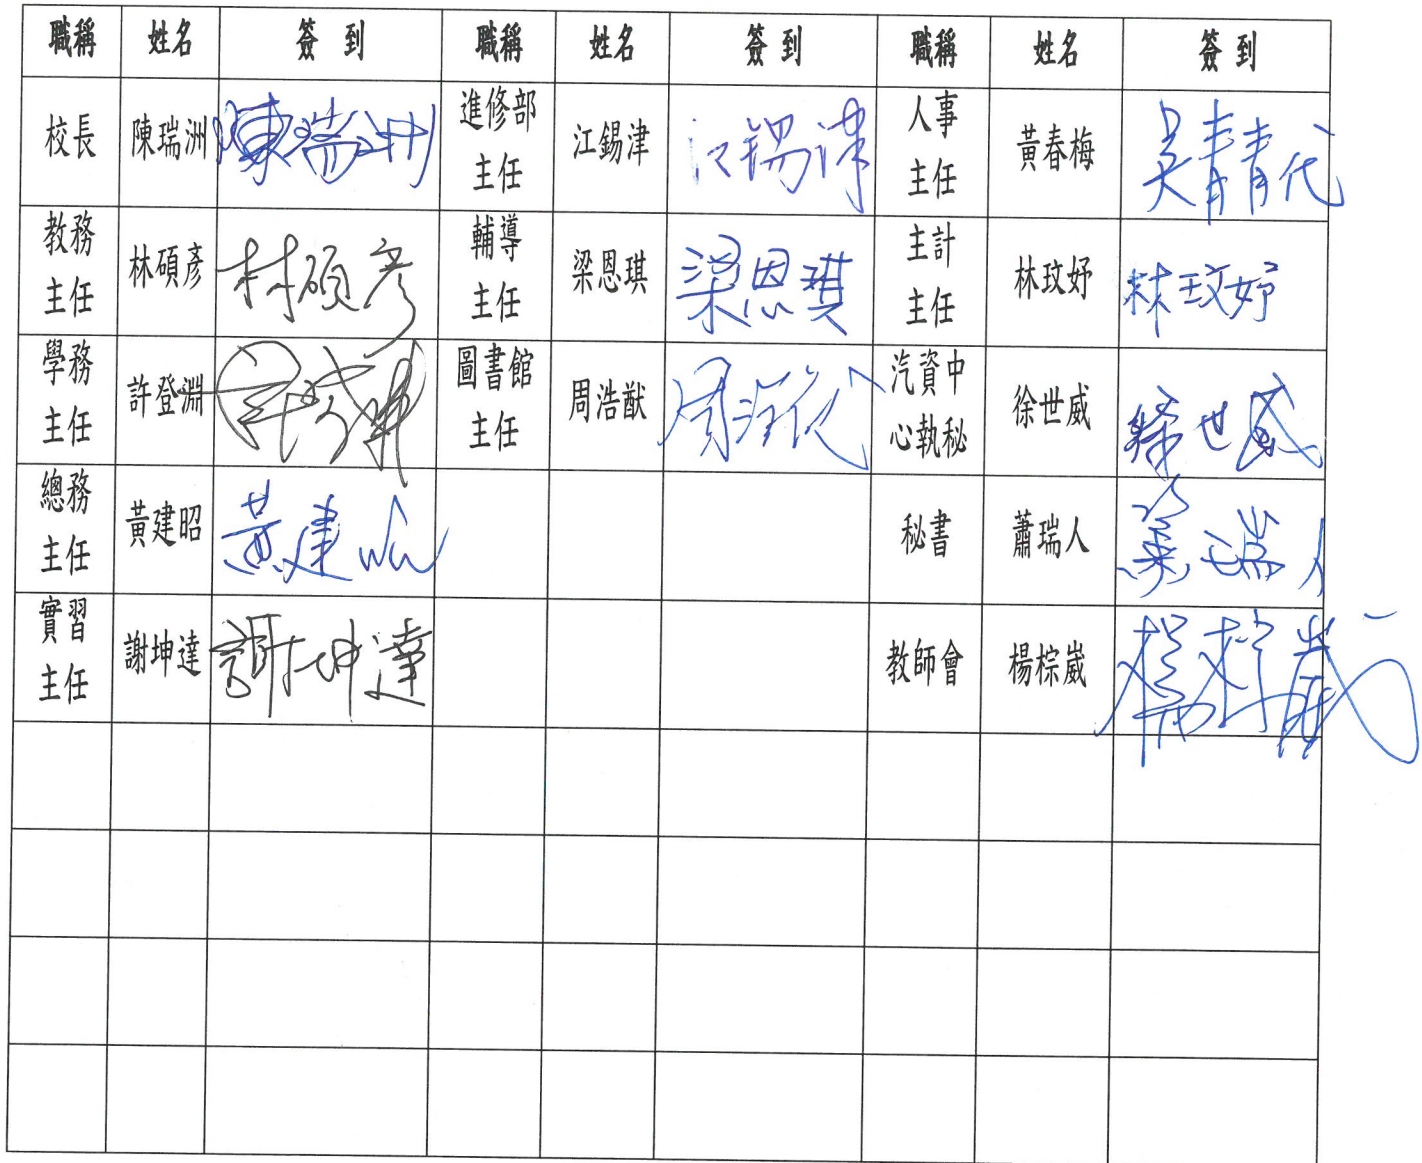 職稱 姓名 簽到 職稱 姓名 簽到 職稱 姓名 簽到
校長 陳瑞洲 陳瑞洲 進修部主任 江錫津 江錫津 人事主任 黃春梅 吳青青代
教務主任 林碩彥 林碩彥 輔導主任 梁恩琪 梁恩琪 主計主任 林玟妤 林玟妤
學務主任 許登淵 圖書館主任 周浩猷 周浩猷 汽資中心執秘 徐世威 徐世威
總務主任 黃建昭 黃建昭 秘書 蕭瑞人 蕭瑞人
實習主任 謝坤達 謝坤達 教師會 楊棕崴 楊棕崴